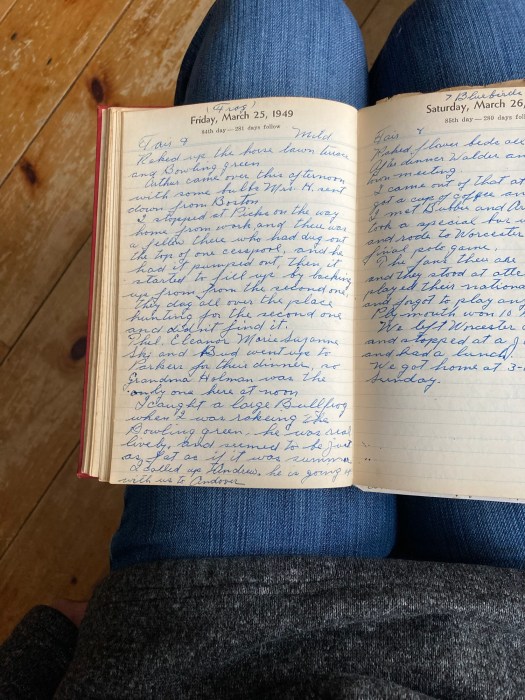 (Frog)
Friday, March 25, 1949
84th day — 281 days follow
Fair 9 Mild
Raked up the horse lawn terrace
and Bowling green
Arthur came over this afternoon
with some bulbs Mrs. H. sent
down from Boston
I stopped at Picks on the way
home from work, and there was
a fellow there who had dug out
the top of one cesspool, and he
had it pumped out, then it
started to fill up by backing
up from from the second one,
They dug all over the place
hunting for the second one
and didn't find it.
Phil. Eleanor Marie Suzanne
Sky and Bud went up to
Parkers for their dinner, so
Grandma Holman was the
only one here at noon
I caught a large Bullfrog
when I was rakeing the
Bowling green, he was real
lively, and seemed to be just
as fat as if it was summer
I called up Andrew. he is going
with us to Andover
7 Bluebirds
Saturday, March 26,
85th day — 280 days foll
Fair 8
Raked flower beds all
After dinner Walder an
won meeting
I came out of that at
got a cup of coffee an
I met Bubber and Ar
took a special bus
and rode to Worcester
final polo game.
The fans thee are
and they stood at atte
played their nationa
and forgot to play an
Plymouth won 10
We left Worcester
and stopped at a
and had a lunch.
We got home at 3-
Sunday.